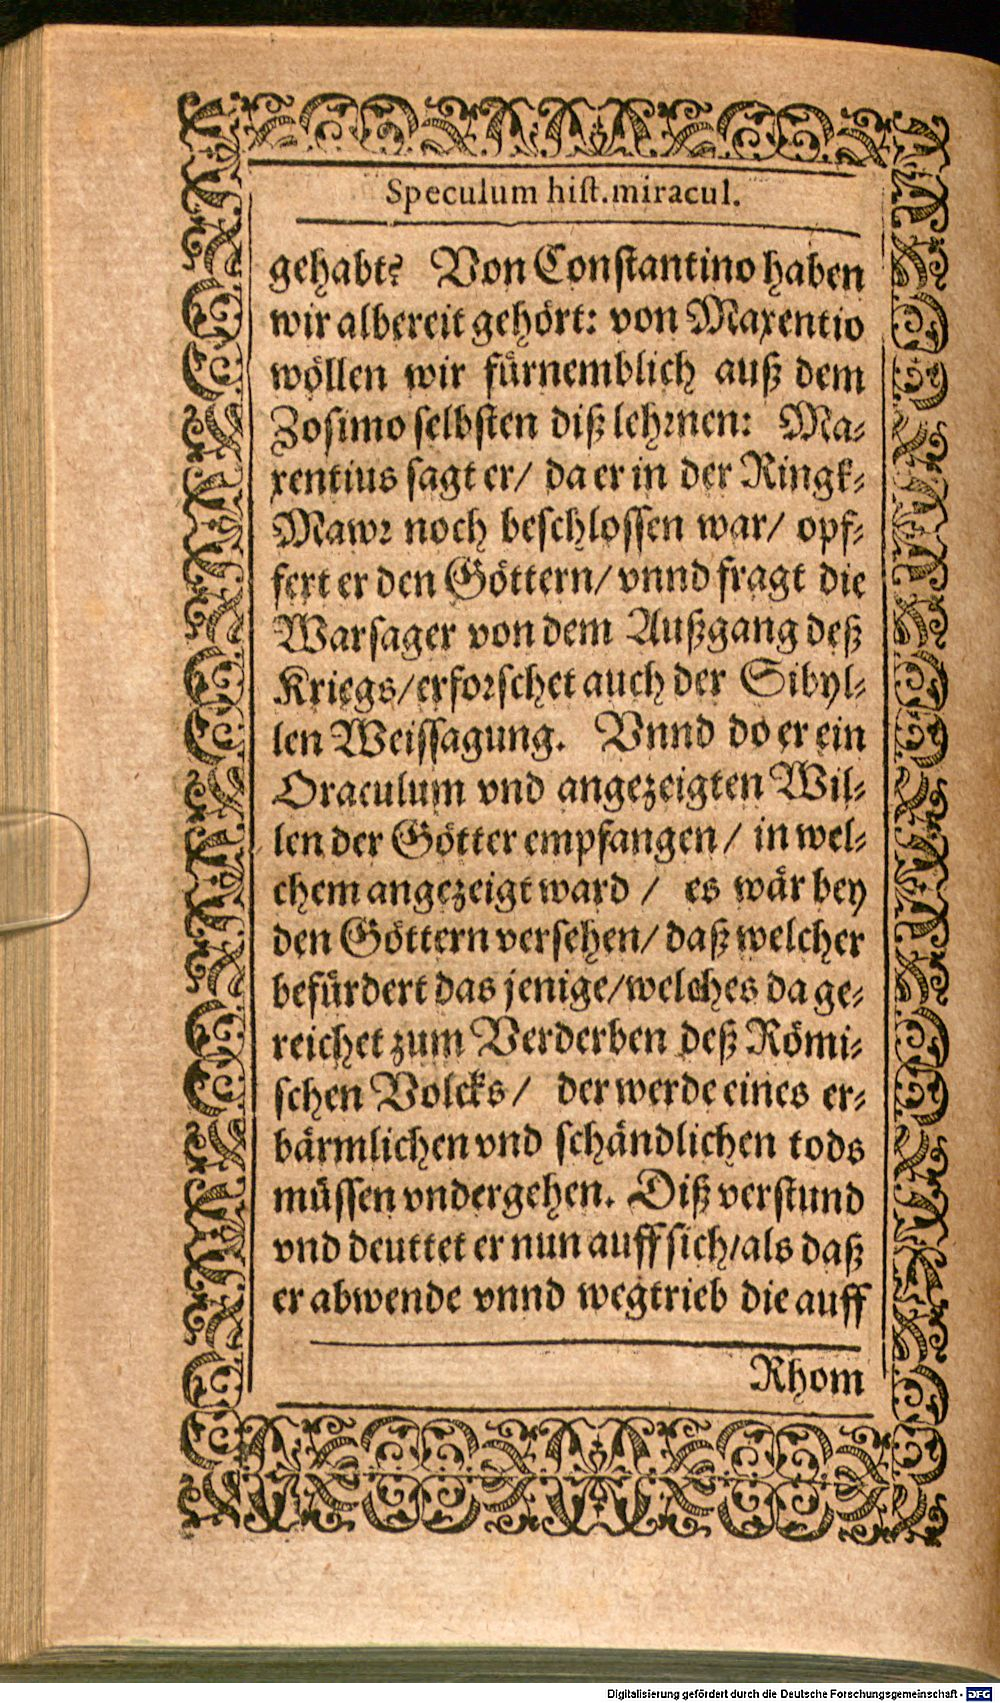 Speculum hiſt. miracul.
gehabt? Von Conſtantino haben
wir albereit gehört: von Maxentio
wöllen wir fürnemblich auß dem
Zosimo ſelbſten diß lehrnen: Ma-
xentius ſagt er/ da er in der Ringk-
Mawr noch beſchloſſen war/ opf-
fert er den Göttern/ vnnd fragt die
Warſager von dem Außgang deß
Kriegs/ erforſchet auch der Sibyl-
len Weiſſagung. Vnnd do er ein
Oraculum vnd angezeigten Wil-
len der Götter empfangen/ in wel-
chem angezeigt ward / es wär bey
den Göttern verſehen/ daß welcher
befürdert das jenige/welches da ge-
reichet zum Verderben deß Römi-
ſchen Volcks/ der werde eines er-
bärmlichen vnd ſchändlichen tods
müſſen vndergehen. Diß verſtund
vnd deuttet er nun auff ſich/als daß
er abwende vnnd wegtrieb die auff
Rhom
Digitalisierung gefördert durch die Deutsche Forschungsgemeinschaft - DFG